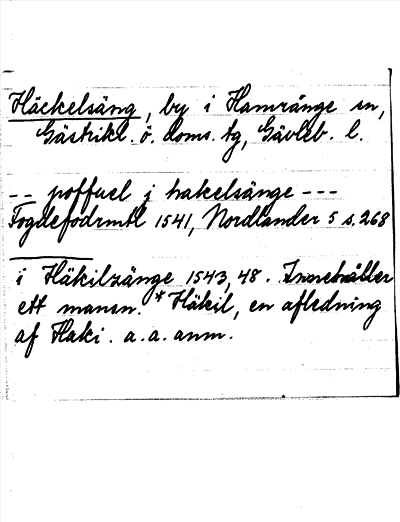 Häckelsäng, by i Hamrånge sn,
Gästrikl. ö. doms. tg, Gävleb. l.
-- poffuel j hakelsänge ---
Fogdefodrmtl 1541, Nordlander 5 s. 268
i Häkilzänge 1543, 48. Innehåller
ett mansn. *Häkil, en afledning
af Haki. a. a. anm.